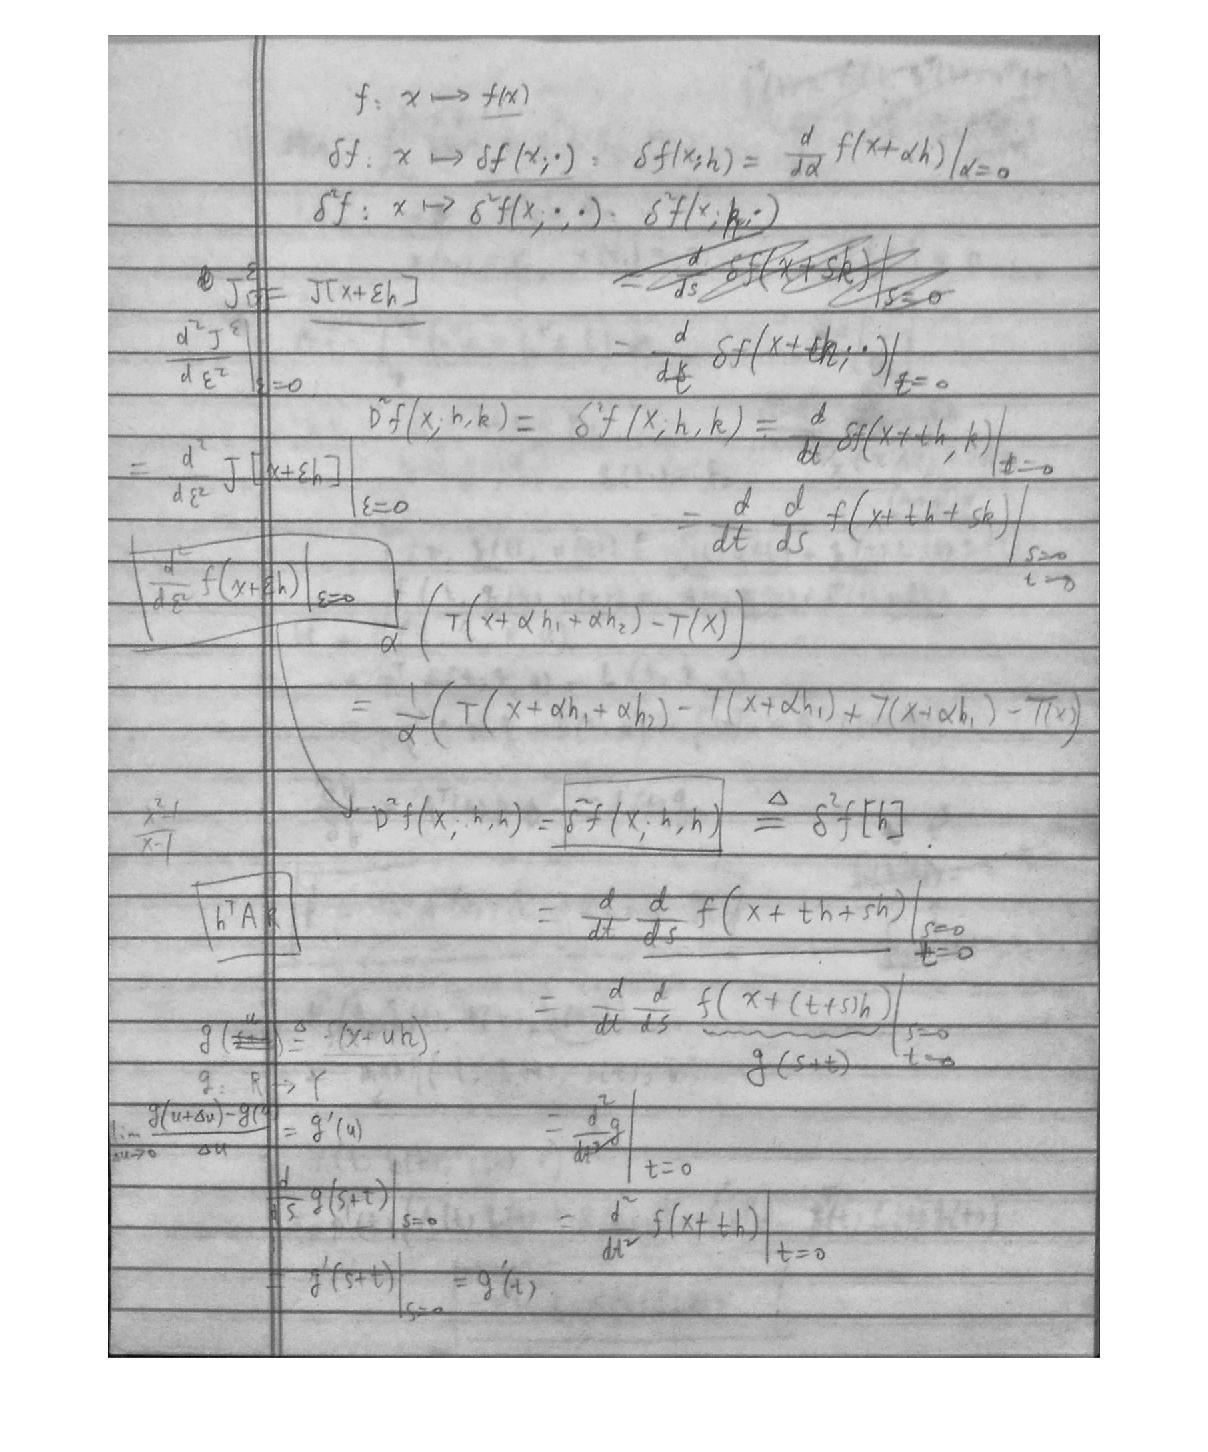 f: x ↦ f(x)
δf: x ↦ δf(x;·): δf(x;h) = d/dα f(x+αh)|α=0
δ²f: x ↦ δ²f(x;·,·): δ²f(x;h,·)
= d/ds δf(x+sk)|s=0
J^ε = J[x+εh]
= d/dt δf(x+th;·)|t=0
d²J^ε/dε² |ε=0
D²f(x;h,k) = δ²f(x;h,k) = d/dt δf(x+th,k)|t=0
= d²/dε² J[x+εh]|ε=0
= d/dt d/ds f(x+th+sk)|s=0 t=0
d²/dε² f(x+εh)|ε=0
α (T(x+αh₁+αh₂)-T(x))
= 1/α (T(x+αh₁+αh₂)-T(x+αh₁)+T(x+αh₁)-T(x))
x²-1/x-1
D²f(x;h,h) = δ²f(x;h,h) ≜ δ²f[h].
hᵀAk
= d/dt d/ds f(x+th+sh)|s=0 t=0
= d/dt d/ds f(x+(t+s)h)|s=0 t=0
g(s+t)
g(u) ≜ f(x+uh)
g: R → Y
lim Δu→0 g(u+Δu)-g(u)/Δu = g'(u)
= d²/dt² g|t=0
d/ds g(s+t)|s=0
= d²/dt² f(x+th)|t=0
= g'(s+t)|s=0 = g'(t)